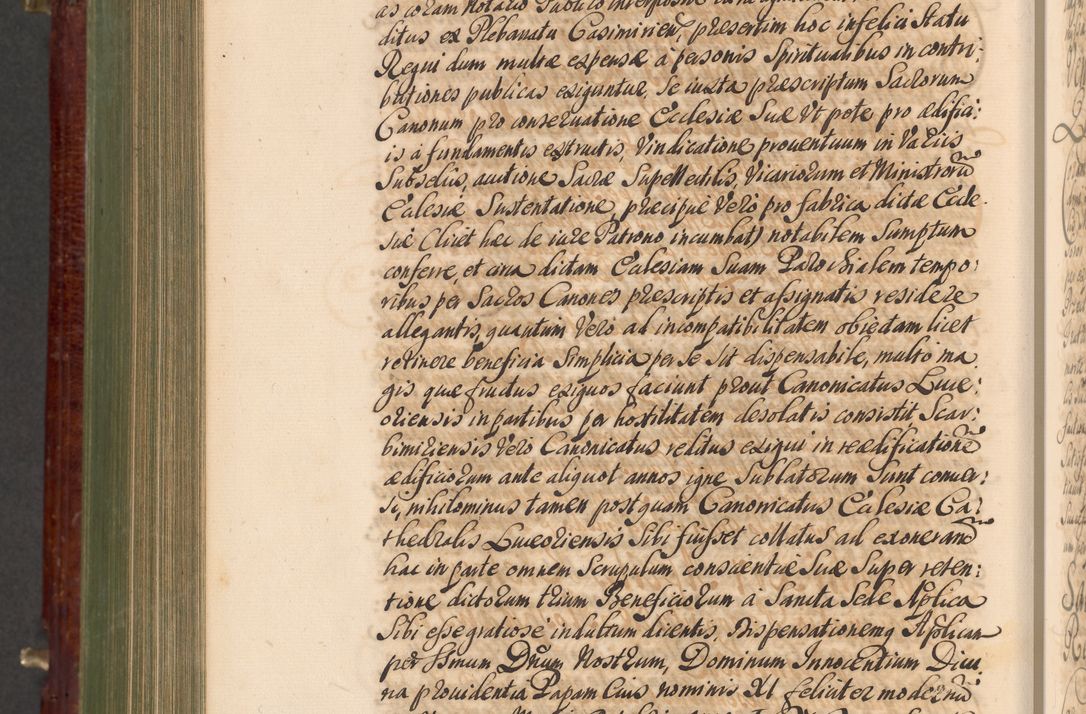 as coram Notario Publico interposita
ditus ex Plebanatu Casimirien, præsertim hoc infelici Statu
Regni dum multæ expensæ à personis Spiritualibus in contri:
butiones publicas exiguntur, se iuxta præscriptum Sacrorum
Canonum pro conseruatione Ecclesiæ Suæ Vt pote pro ædifici:
is à fundamentis extructis, Vindicatione prouentuum in Varijs
Subselijs, auctione Sacræ Supellectilis, Vicariorum et Ministrorũ
Ecclesiæ Sustentatione, præcipuè Verò pro fabrica dictæ Eccle:
siæ (licet hæc de iure Patrono incumbat) notabilem Sumptum
conferre, et circa dictam Ecclesiam Suam Parochialem tempo:
ribus per Sacros Canones præscriptis et assignatis residere
allegantis, quantum Verò ad incompatibilitatem obiectam licet
retinere beneficia Simplicia per se sit dispensabile, multo ma
gis quæ fructus exiguos faciunt prout Canonicatus Luce:
oriensis in partibus per hostilitatem desolatis consistit Scar:
bimiriensis Verò Canonicatus reditus exigui in reædificationẽ
ædificiorum ante aliquot annos igne Sublatorum Sunt conuer:
si, nihilominus tamen postquam Canonicatus Ecclesiæ Ca:
thedralis Luceoriensis Sibi fuisset collatus ad exonerandã
hac in parte omnem Scrupulum conscientiæ Suæ Super reten:
tione dictorum trium Beneficiorum à Sancta Sede Aplica
Sibi esse gratiosè indultum dicentis, Dispensationemq Aplicam
per Ssmum Dnum Nostrum, Dominum Innocentium Diui
na prouidentia Papam Eius nominis XI feliciter modernũ